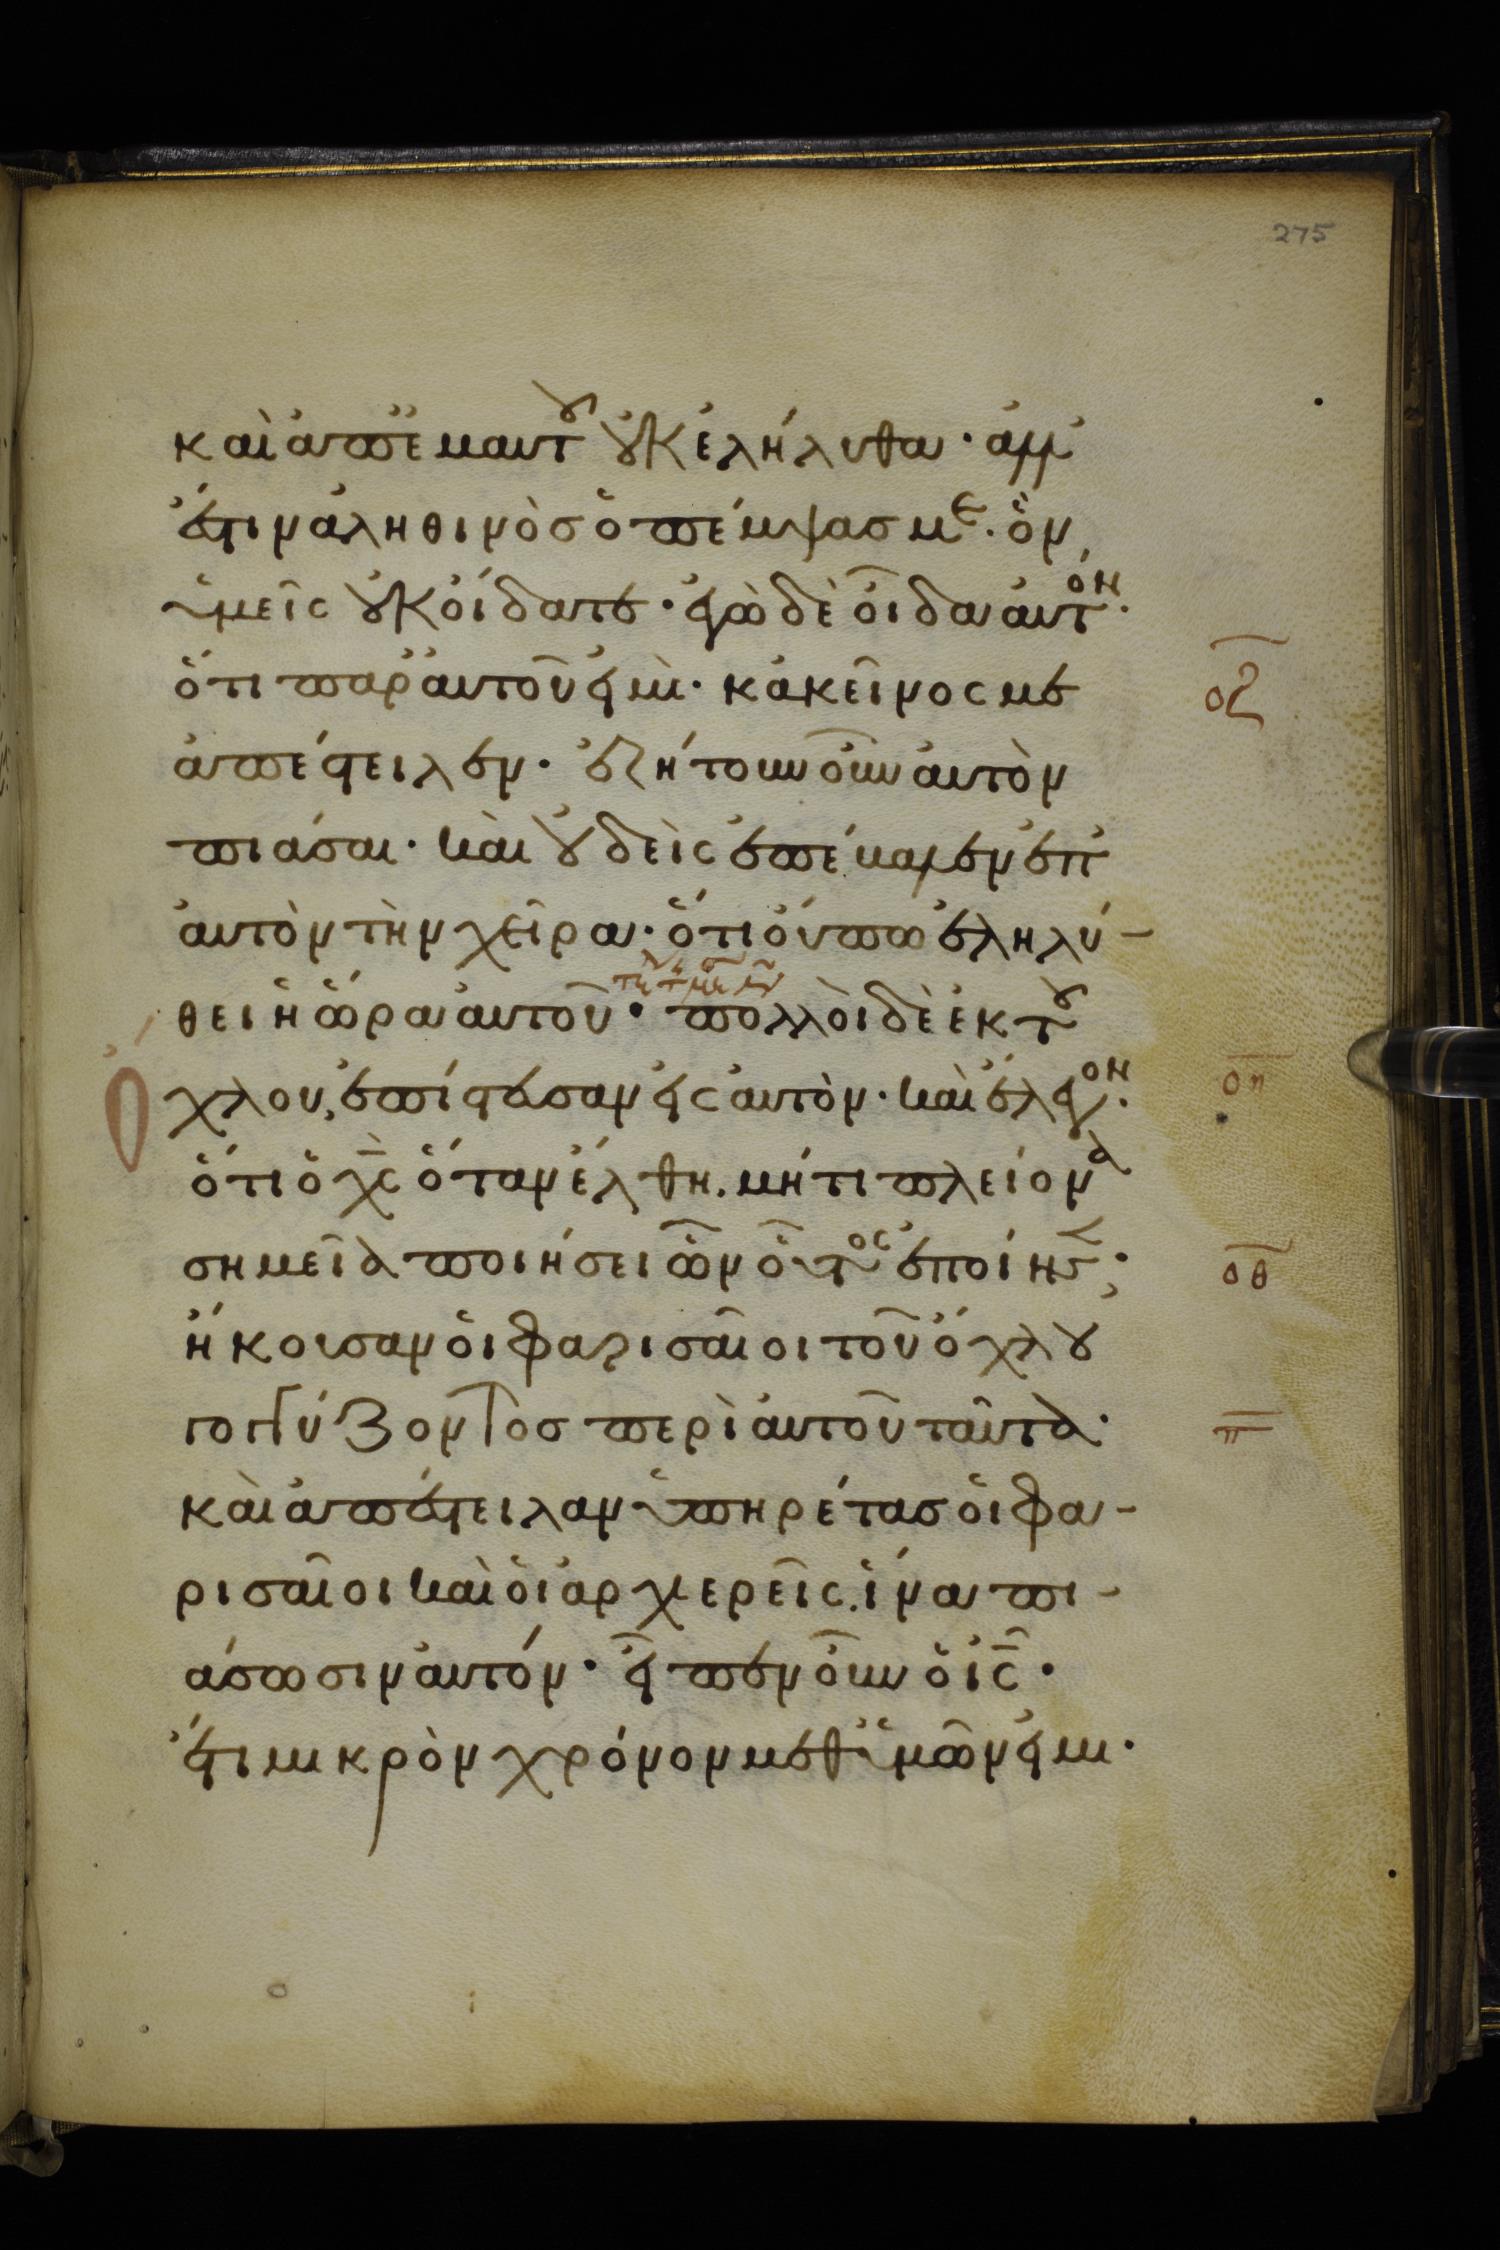 275
καὶ ἀπ' ἐμαυτοῦ οὐκ ἐλήλυθα· ἀλλ'
ἔστιν ἀληθινὸσ ὁ πέμψασ με· ὃν
ὑμεῖς οὐκ οἴδατε· ἐγὼ δὲ οἶδα αὐτόν·
ὅτι παρ' αὐτοῦ εἰμὶ· κἀκεῖνος με
οζ
ἀπέστειλεν· ἐζήτουν οὖν αὐτὸν
πιάσαι· καὶ οὐδεὶς ἐπέβαλεν ἐπ'
αὐτὸν τὴν χεῖρα· ὅτι οὔπω ἐληλύ-
θει ἡ ὥρα αὐτοῦ· πολλοὶ δὲ ἐκ τοῦ
ὄχλου, ἐπίστευσαν εἰς αὐτὸν· καὶ ἔλεγον·
οη
ὅτι ὁ χς ὅταν ἔλθη. μήτι πλείονα
σημεῖα ποιήσει ὧν οὗτος ἐποίησεν;
οθ
ἤκουσαν οἱ φαρισαῖοι τοῦ ὄχλου
γογγύζοντοσ περὶ αὐτοῦ ταῦτα·
π
καὶ ἀπέστειλαν ὑπηρέτασ οἱ φα-
ρισαῖοι καὶ οἱ ἀρχιερεῖς, ἵνα πι-
άσωσιν αὐτόν· εἶπεν οὖν ὁ ις·
ἔτι μικρὸν χρόνον μεθ' ὑμῶν εἰμι·